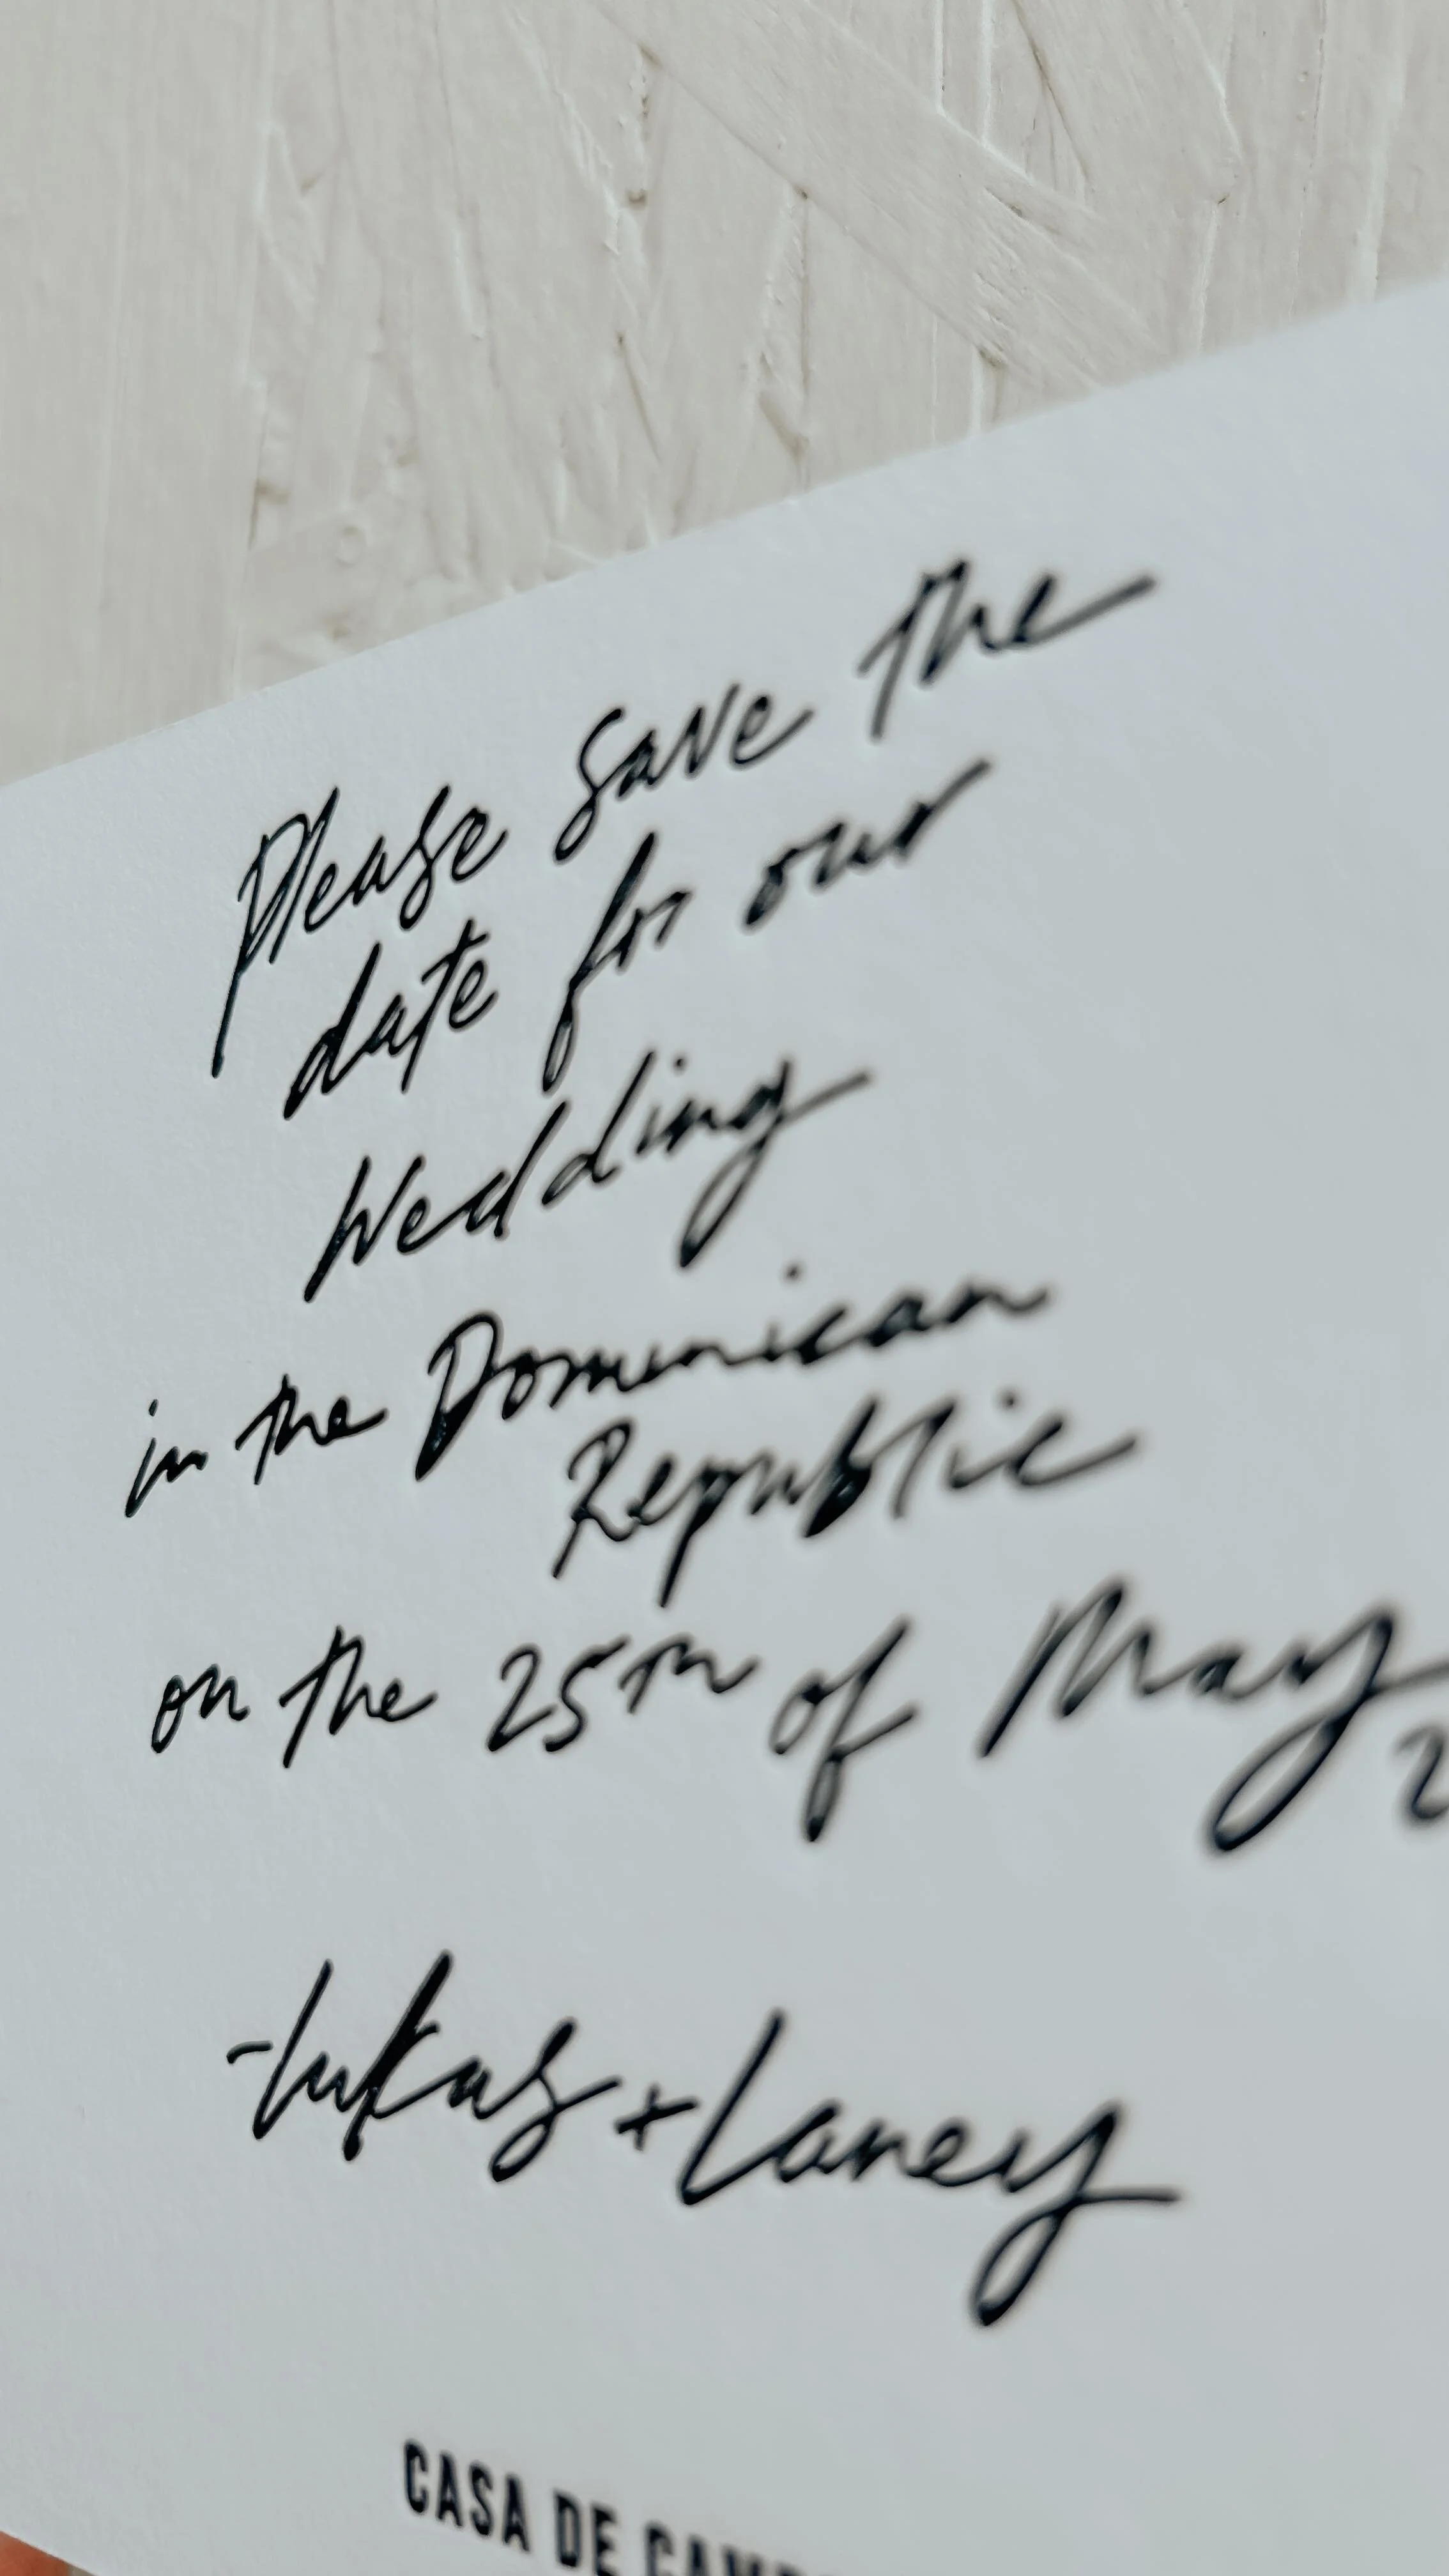 Please save the
date for our
Wedding
in the Dominican
Republic
on the 25th of May
2
-Lukas + Laney
CASA DE CAMP